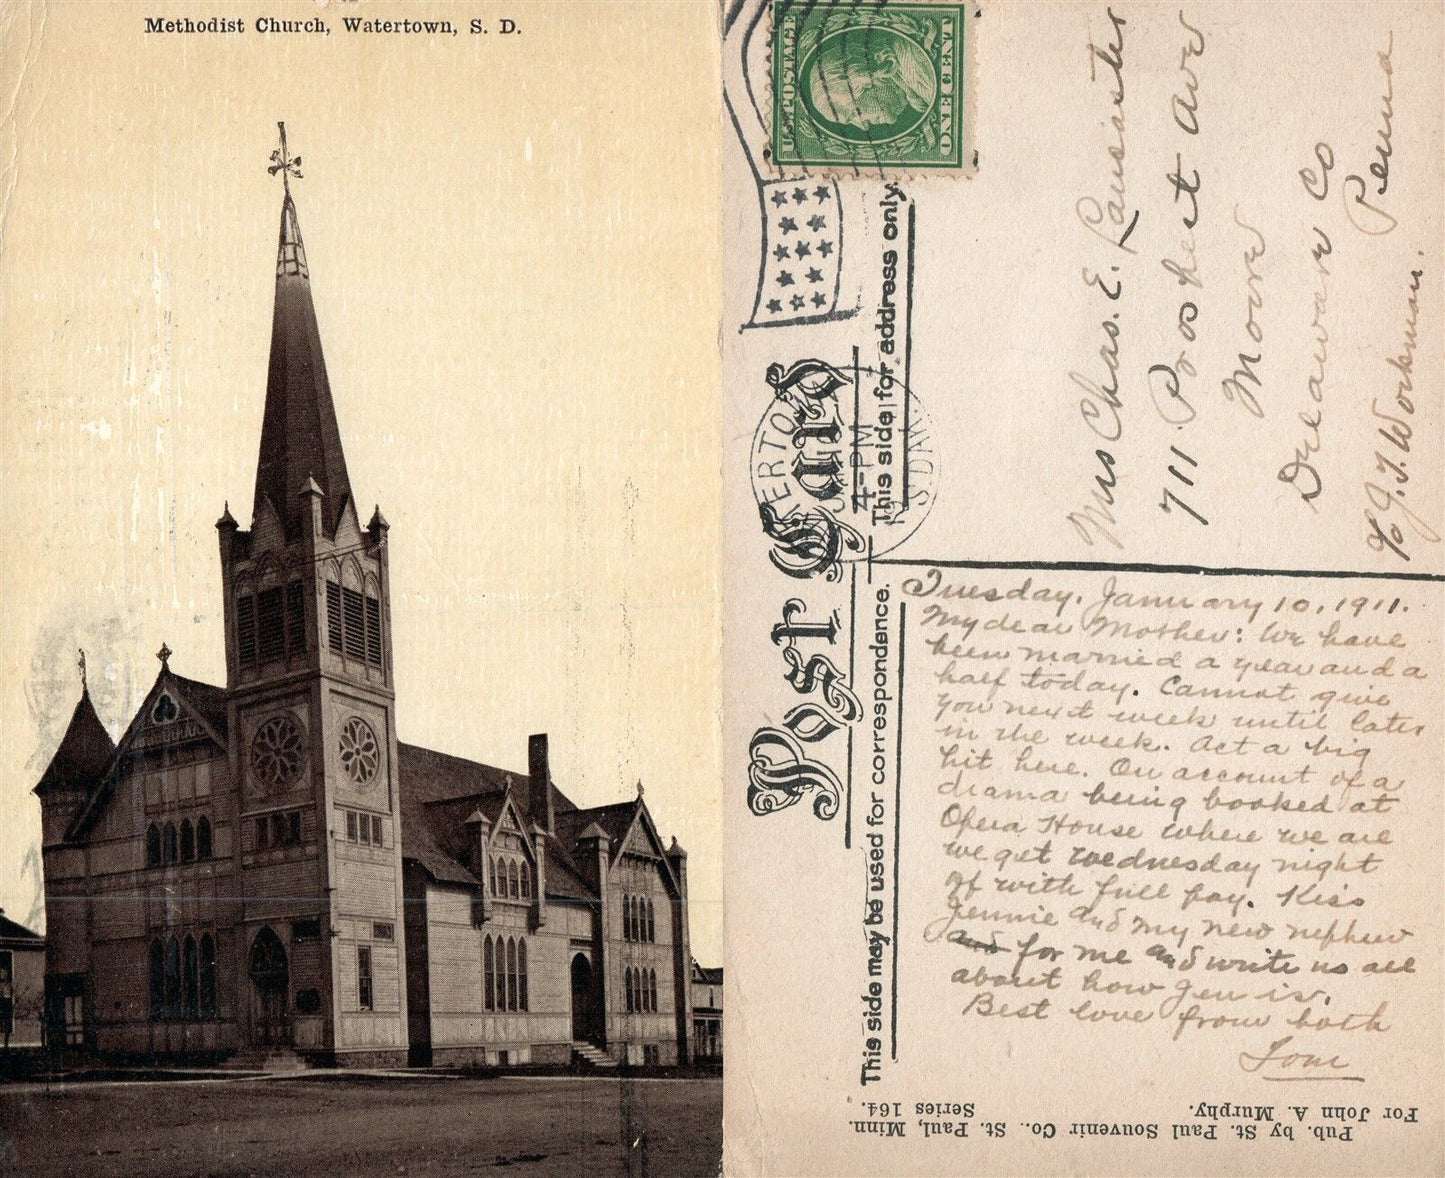 Methodist Church, Watertown, S. D.
U.S. POSTAGE
ONE CENT
Post Card
This side for address only.
This side may be used for correspondence.
4-PM
S. DAK.
Mrs Chas. E.
711. Prospect Ave
Moore
Delaware Co
Penna
℅ J. T. Workman.
Tuesday, January 10, 1911.
My dear Mother: We have
been married a year and a
half today. Cannot give
you next week until later
in the week. Act a big
hit here. On account of a
drama being booked at
Opera House where we are
we get Wednesday night
off with full pay. Kiss
Jennie and my new nephew
and for me and write us all
about how Jen is.
Best love from both
Tom
Pub. by St. Paul Souvenir Co., St. Paul, Minn.
For John A. Murphy. Series 164.